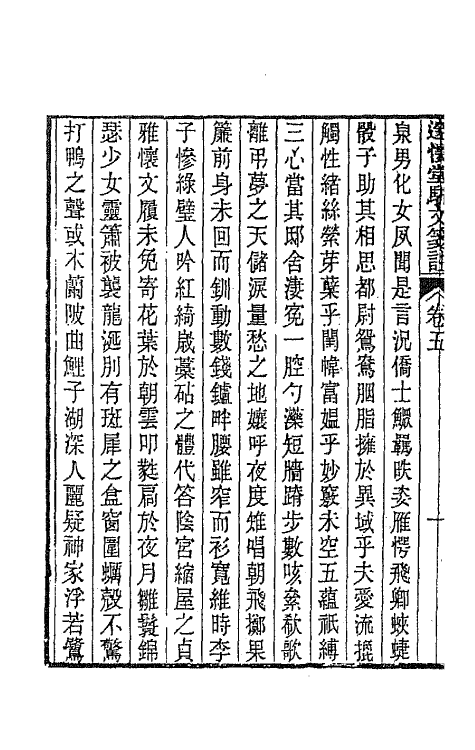 邃懷堂駢文箋註 卷五 一
泉男化女夙聞是言況僑士鰥羈昳委雁愕飛卿蛺蜨
骰子助其相思都尉鴛鴦胭脂擁於異域乎夫愛流掘
觸性緒絲縈芽蘖乎閨幃富媼乎妙竅未空五蘊祇縛
三心當其邸舍淒寃一腔勺藥短牆躋步數咳絫欷歌
離弔夢之天儲淚量愁之地孃呼夜度雉唱朝飛擲果
簾前身未回而釧動數錢鑪畔腰雖窄而衫寬維時李
子慘綠璧人吟紅綺歲藁砧之體代答陰宮縮屋之貞
雅懷文履未免寄花葉於朝雲叩蕤扃於夜月雛鬟錦
瑟少女靈簫被襲龍涎別有斑犀之盒窗圍蠣殼不驚
打鴨之聲或木蘭陂曲鯉子湖深人麗疑神家浮若鷺